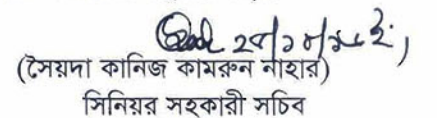 (সৈয়দা কানিজ কামরুন নাহার)
সিনিয়র সহকারী সচিব